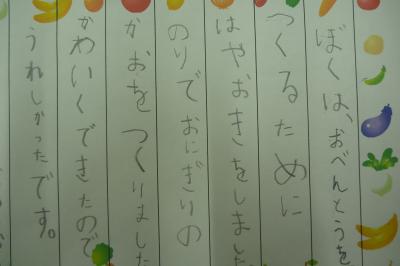 ぼくは、おべんとうを
つくるために
はやおきをしました
のりでおにぎりの
かおをつくりました
かわいくできたので
うれしかったです。